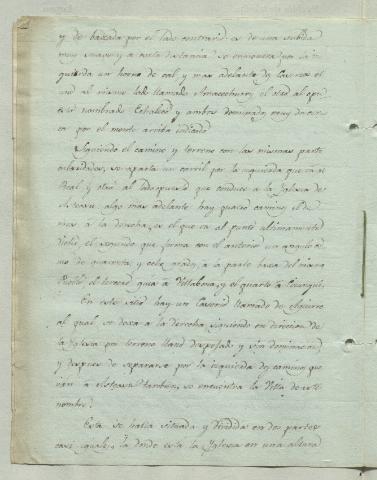 y de baxada por el lado contrario es de una subida
muy suave y a corta distancia se encuentra por la iz
quierda un horno de cal y mas adelante dos Caserios el
uno al mismo lado llamado el otro al opu
esto nombrado y ambos dominados muy de cer
ca por el monte arriba indicado
Siguiendo el camino y terreno con las mismas parti
cularidades, se aparta un carril por la izquierda que va al
Real y otro al lado opuesto que conduce a la Yglesia de
algo mas adelante hay quatro caminos el de
mas á la derecha, es el que va al punto ultimamente
dicho, el segundo que forma con el anterior un angulo a
no de quarenta y ocho grados, á la parte baxa del mismo
Pueblo el tercero guia a Villabona, y el quarto a
En este sitio hay un Caserio llamado de
al qual se dexa á la derecha siguiendo en direccion de
la Yglesia por terreno llano despejado y sin dominacion
y despues de separarse por la izquierda dos caminos que
van á tambien, se encuentra la Villa de su
nombre.
Esta se halla situada y dividida en dos partes
casi iguales, la donde está la Yglesia en una altura